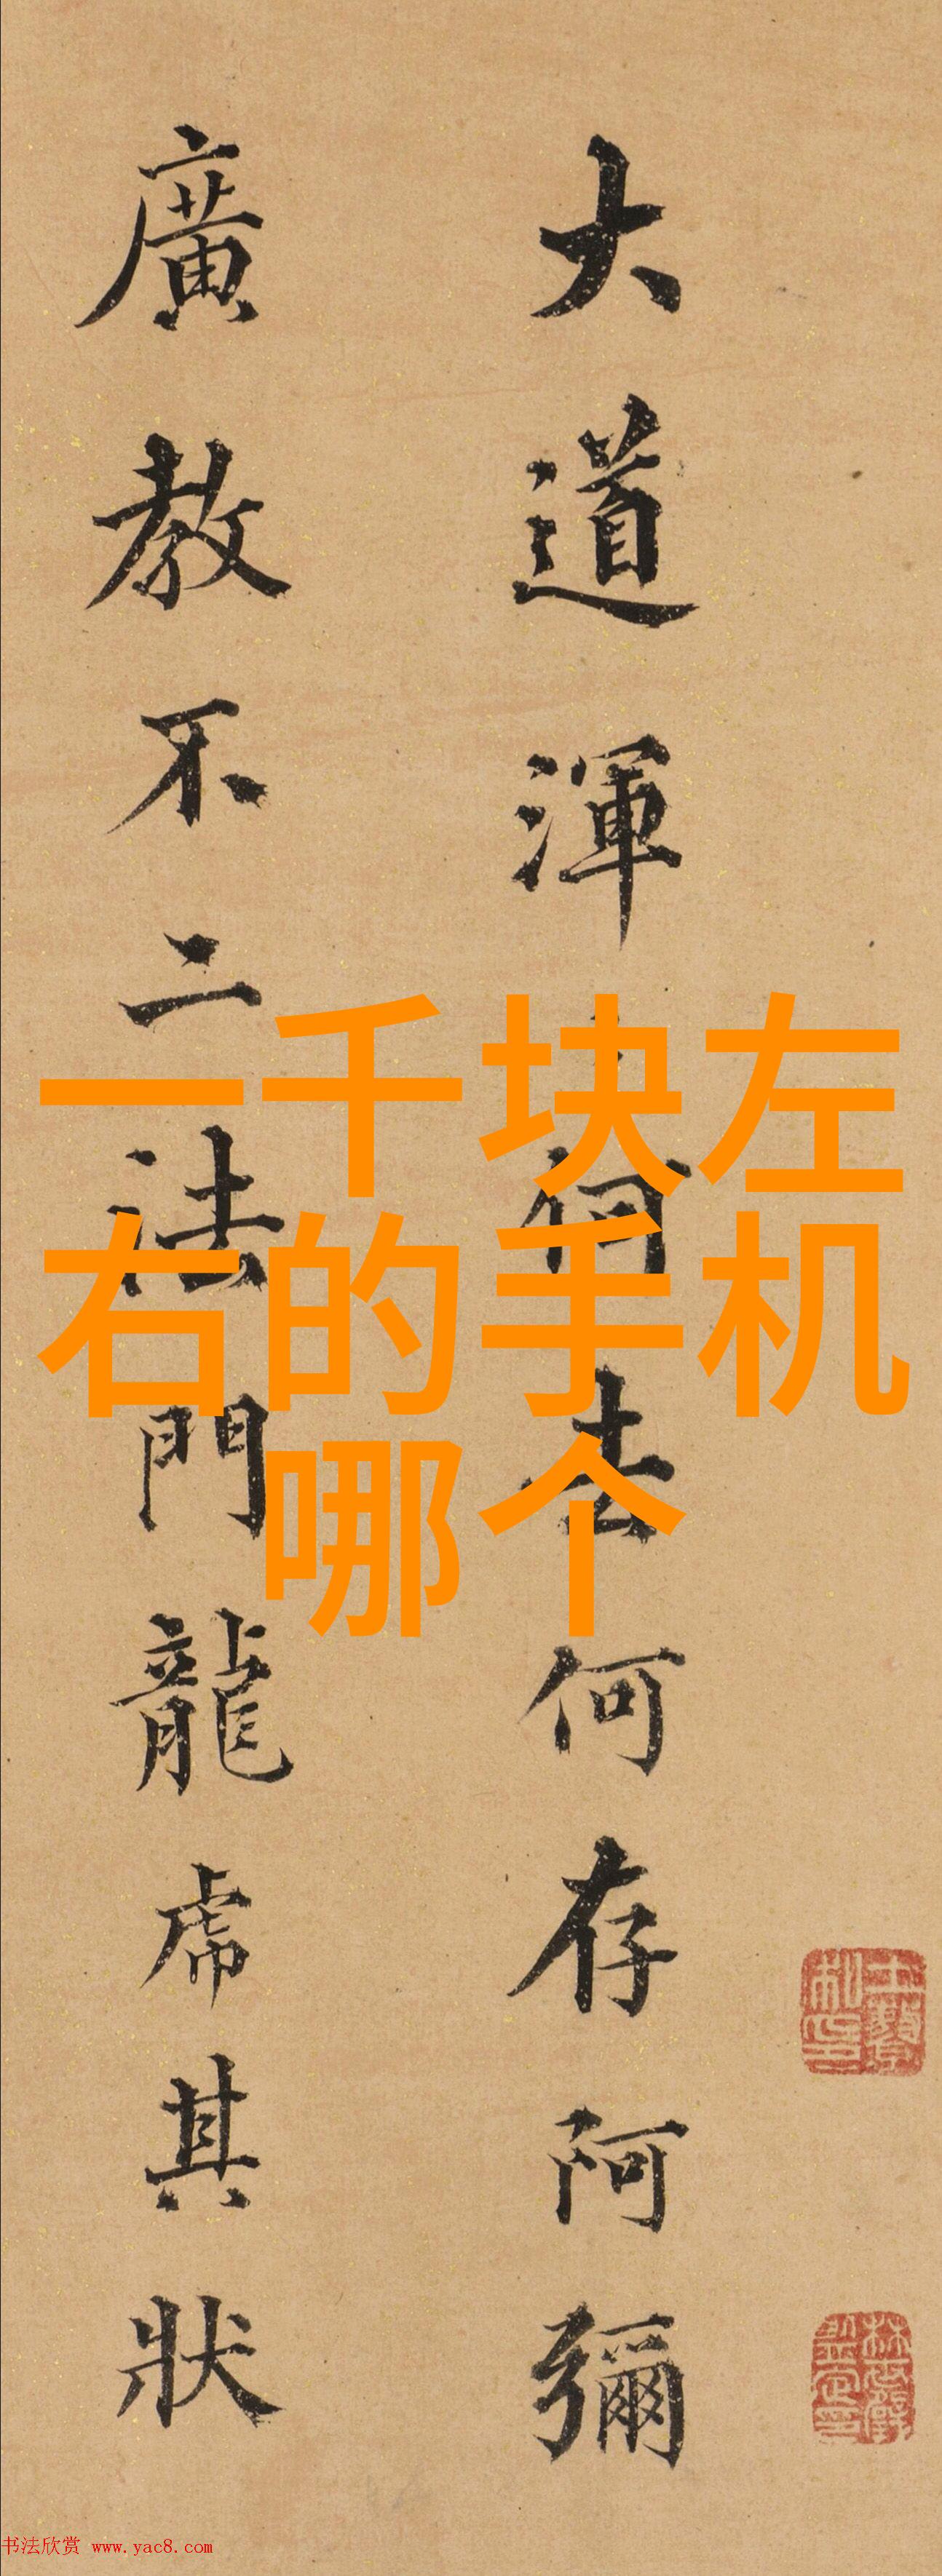 大道渾何去何存阿彌
廣教不二法門龍虎其狀
一千块左
右的手机
哪个
书法欣赏 www.yac8.com